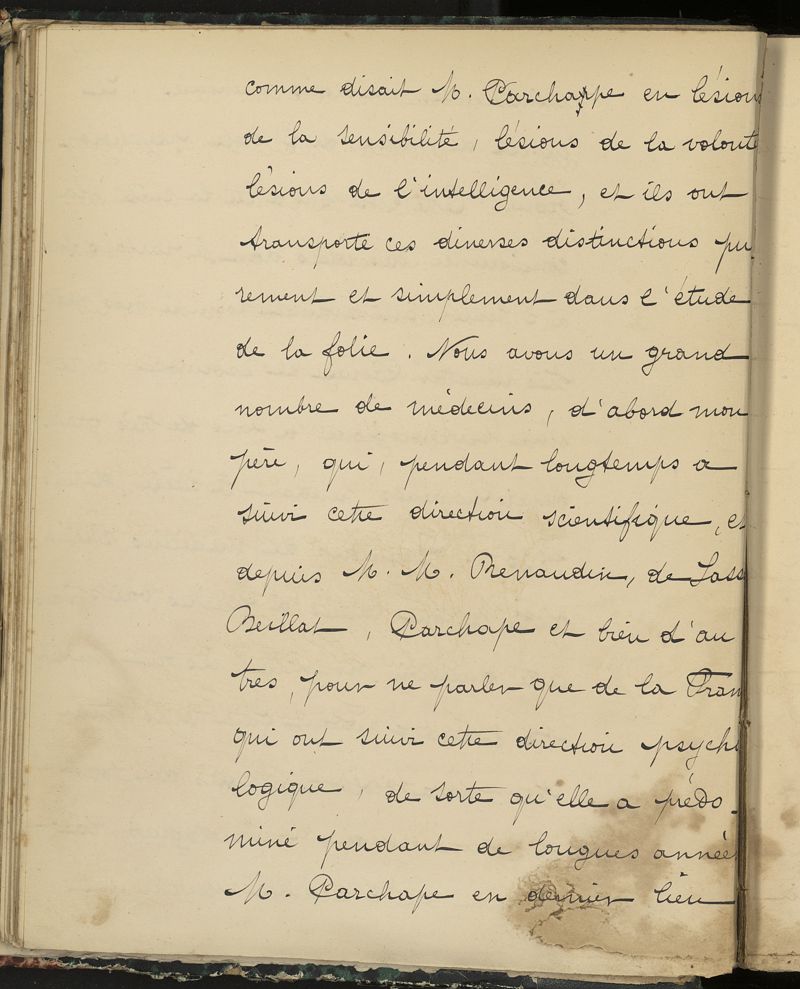 comme disait M. Parchappe en lésions
de la sensibilité, lésions de la volonté
lésions de l'intelligence, et ils ont
transporté ces diverses distinctions pu
rement et simplement dans l'étude
de la folie. Nous avons un grand
nombre de médecins, d'abord mon
père, qui, pendant longtemps a
suivi cette direction scientifique, et
depuis M. M. Renaudin, de Lass
Beillat, Parchape et bien d'au
tres, pour ne parler que de la Fran
qui ont suivi cette direction psycho
logique, de sorte qu'elle a prédo_
miné pendant de longues années
M. Parchape en dernier lieu